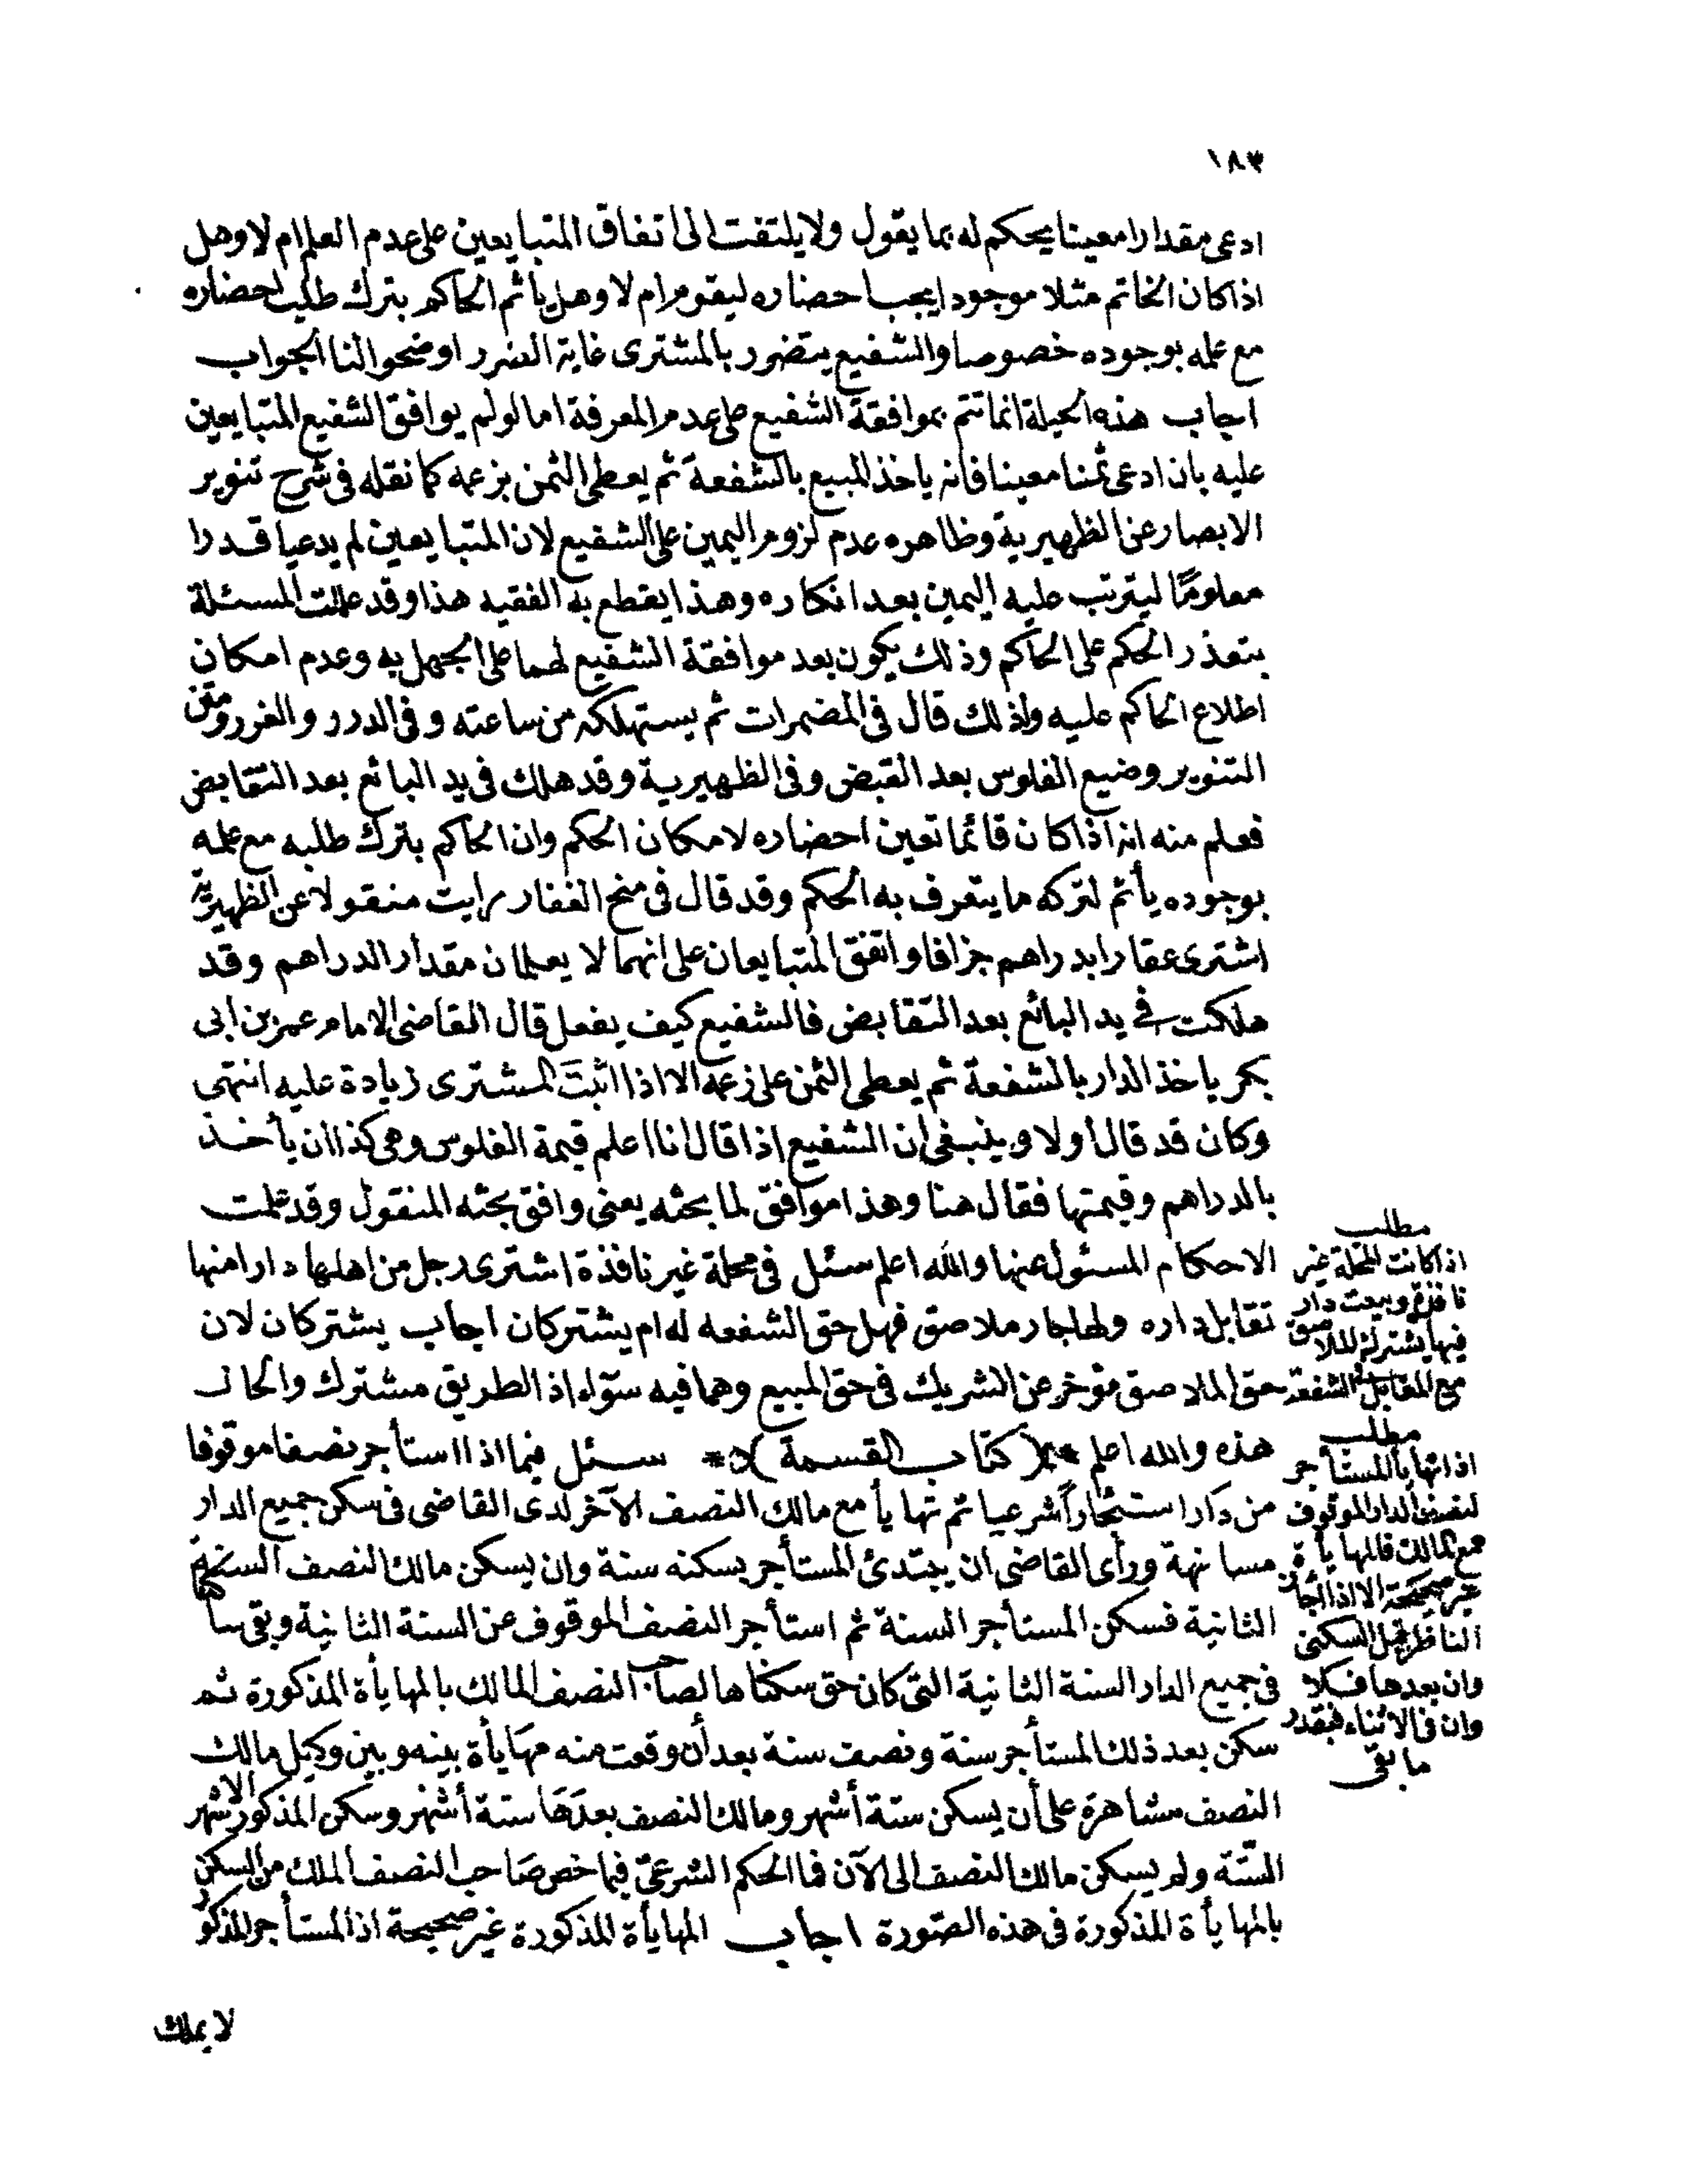 ١٨٣
ادعى مقدارا معينا يحكم له بما يقول ولا يلتفت الى اتفاق المتبايعين على عدم العلم ام لا وهل
اذا كان الخاتم مثلا موجودا يجب احضاره ليقوم ام لا وهل يأثم الحاكم بترك طلب احضاره
مع علمه بوجوده خصوصا والشفيع يتضرر بالمشترى غاية الضرر اوضحوا لنا الجواب
اجاب هذه الحيلة انما تتم بموافقة الشفيع على عدم المعرفة اما لو لم يوافق الشفيع المتبايعين
عليه بان ادعى ثمنا معينا فانه ياخذ المبيع بالشفعة ثم يعطى الثمن بزعمه كما نقله فى شرح تنوير
الابصار عن الظهيرية وظاهره عدم لزوم اليمين على الشفيع لان المتبايعين لم يدعيا قدرا
معلومًا ليترتب عليه اليمين بعد انكاره وهذا يقطع به الفقيه هذا وقد عللت المسئلة
بتعذر الحكم على الحاكم وذلك يكون بعد موافقة الشفيع لهما على الجهل به وعدم امكان
اطلاع الحاكم عليه ولذلك قال فى المضمرات ثم يستهلكه من ساعته وفى الدرر والغرر ومتن
التنوير وضيع الفلوس بعد القبض وفى الظهيرية وقد هلك فى يد البائع بعد التقابض
فعلم منه انه اذا كان قائما تعين احضاره لامكان الحكم وان الحاكم بترك طلبه مع علمه
بوجوده يأثم لتركه ما يتعرف به الحكم وقد قال فى منح الغفار رايت منقولا عن الظهيرية
اشترى عقارا بدراهم جزافا واتفق المتبايعان على انهما لا يعلمان مقدار الدراهم وقد
هلكت فى يد البائع بعد التقابض فالشفيع كيف يفعل قال القاضى الامام عمر بن ابى
بكر ياخذ الدار بالشفعة ثم يعطى الثمن على زعمه الا اذا اثبت المشترى زيادة عليه انتهى
وكان قد قال أولا وينبغى ان الشفيع اذا قال انا اعلم قيمة الفلوس وهى كذا ان يأخذ
بالدراهم وقيمتها فقال هنا وهذا موافق لما بحثه يعنى وافق بحثه المنقول وقد علمت
الاحكام المسئول عنها والله اعلم سئل فى محلة غير نافذة اشترى رجل من اهلها دارا منها
تقابل داره ولها جار ملاصق فهل حق الشفعه له ام يشتركان اجاب يشتركان لان
حق الملاصق مؤخر عن الشريك فى حق المبيع وهما فيه سوّاء اذ الطريق مشترك والحال
هذه والله اعلم *( كتاب القسمة )* سئل فيما اذا استأجر نصفا موقوفا
من دار استئجاراً شرعيا ثم تهايأ مع مالك النصف الآخر لدى القاضى فى سكن جميع الدار
مسانهة ورأى القاضى ان يبتدئ المستأجر بسكنه سنة وان يسكن مالك النصف السنة
الثانية فسكن المستأجر السنة ثم استأجر النصف الموقوف عن السنة الثانية وبقى ساكنا
فى جميع الدار السنة الثانية التى كان حق سكناها لصاحب النصف المالك بالمهايأة المذكورة ثم
سكن بعد ذلك المستأجر سنة ونصف سنة بعد أن وقعت منه مهَايأة بينه وبين وكيل مالك
النصف مشاهرة على أن يسكن ستة أشهر ومالك النصف بعدَهَا ستة أشهر وسكن المذكور الاشهر
الستّة ولم يسكن مالك النصف الى الآن فما الحكم الشرعىّ فيما خص صَاحب النصف الملك من السكن
بالمهايأة المذكورة فى هذه الصّورة اجاب المهايأة المذكورة غير صحيحة اذ المستأجر المذكور
لا يملك
مطلب
اذا كانت المحلة غير
نافذة وبيعت دار
فيها يشترك الملاصق
مع المقابل فى الشفعة
مطلب
اذا تهايأ المستأجر
لنصف الدار الموقوف
مع المالك فالمهايأة
غير صحيحة الا اذا اجاز
الناظر قبل السكنى
وان بعدها فلا
وان فى الاثناء فبقدر
ما بقى